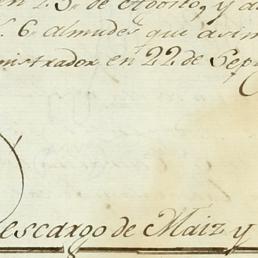 de Agosto, y
6 almudes que asim
nistrador en 22 de Sep
Descargo de Maiz y